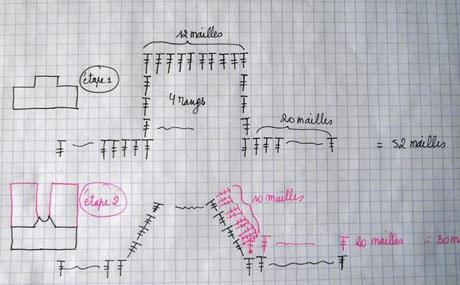 12 mailles
étape 1
4 rangs
20 mailles
= 52 mailles
étape 2
10 mailles
20 mailles = 30 m